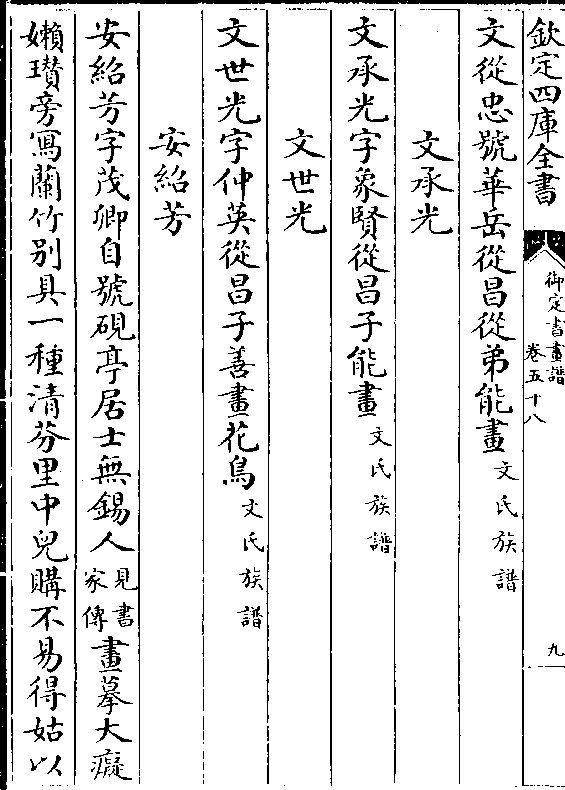 欽定四庫全書
御定書畫譜
卷五十八
九
文從忠號華岳從昌從弟能畫文氏族譜
文承光
文承光字象賢從昌子能畫文氏族譜
文世光
文世光字仲英從昌子善畫花鳥文氏族譜
安紹芳
安紹芳字茂卿自號硯亭居士無錫人見書家傳畫摹大癡
嬾瓚旁寫蘭竹别具一種清芬里中兒購不易得姑以